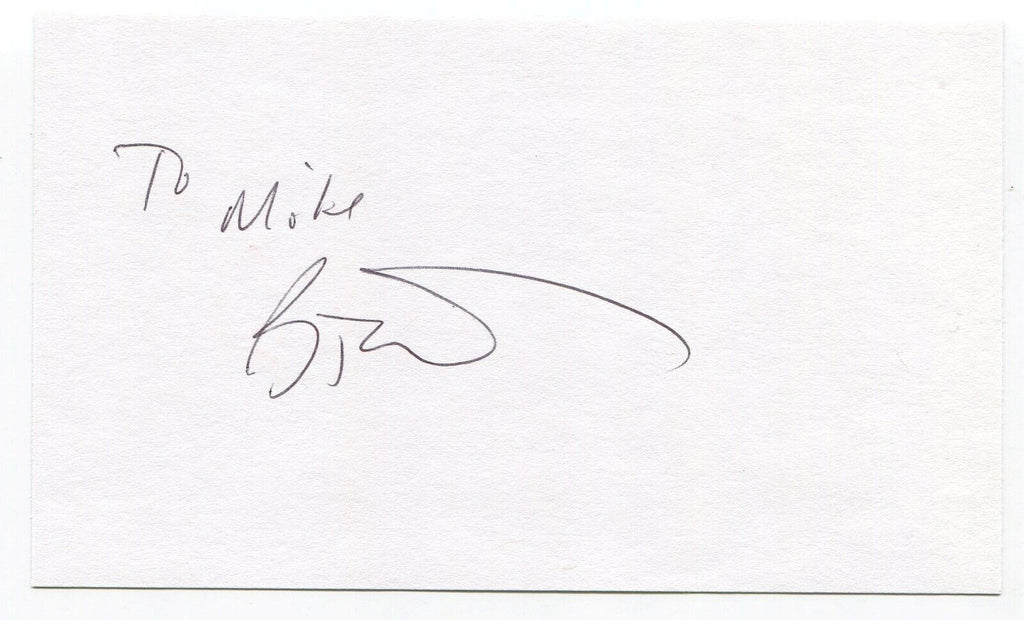 To Mike